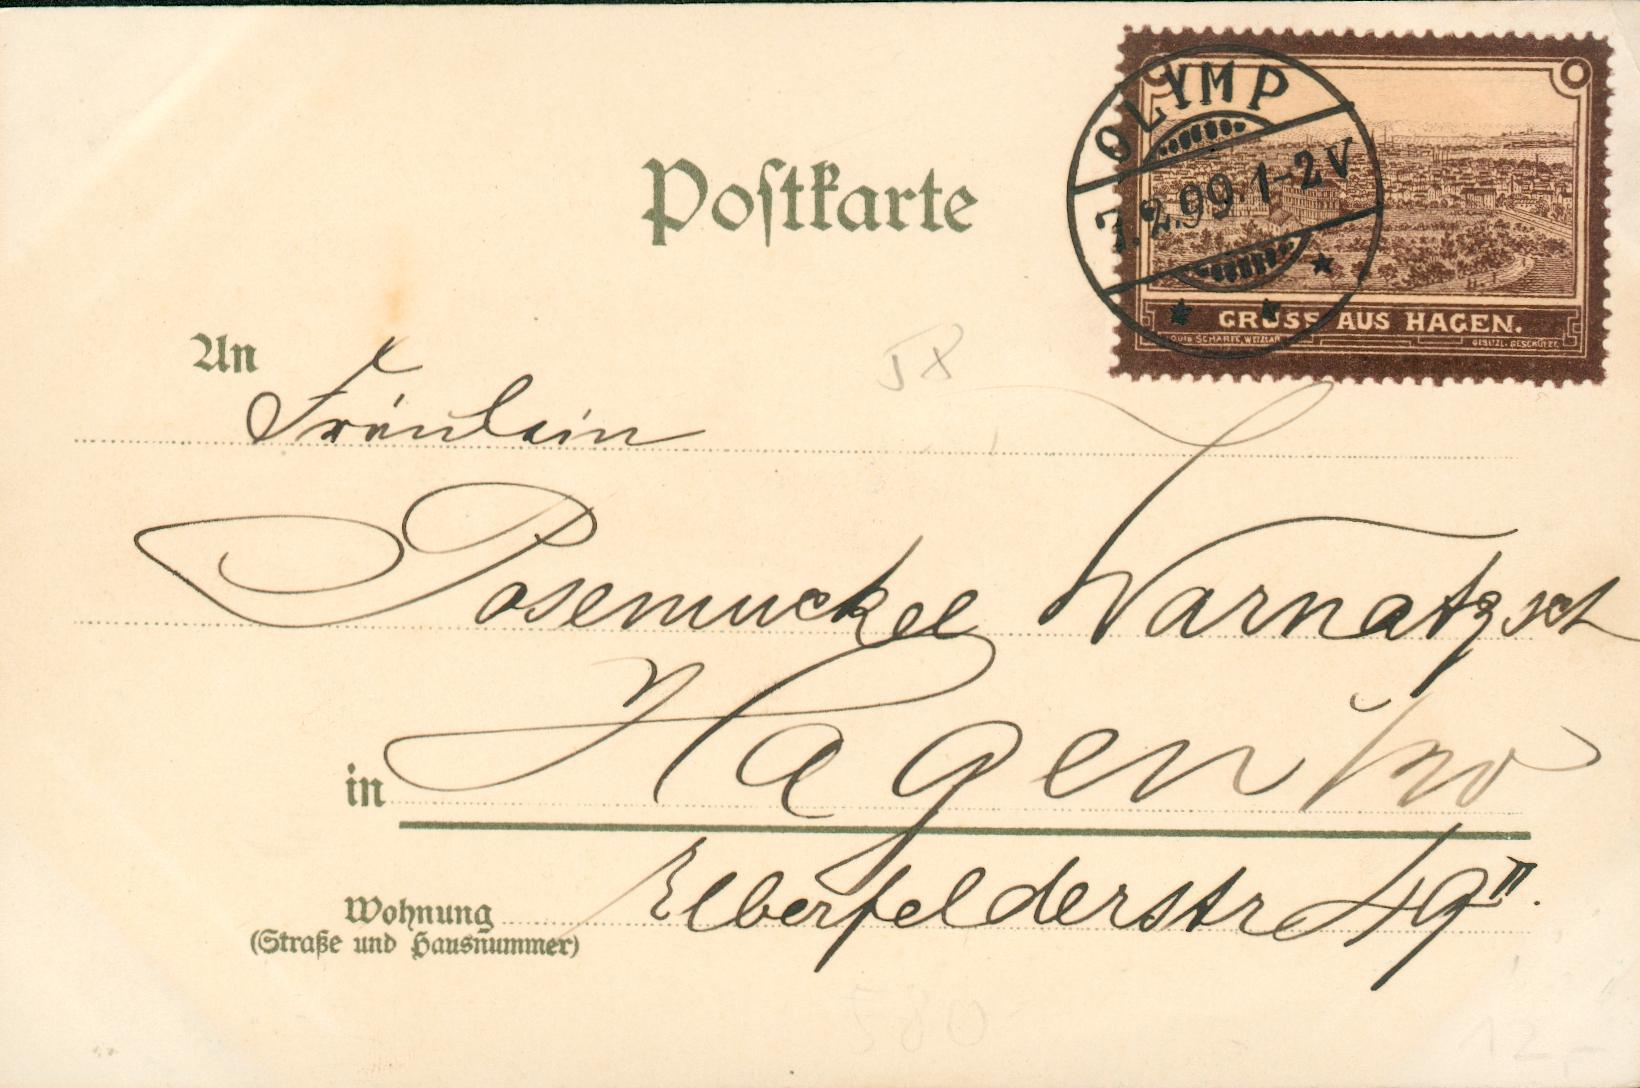 Postkarte
OLYMP
7.2.99.1-2V
GRUSS AUS HAGEN.
LOUIS SCHARFE, WETZLAR
GESETZL. GESCHÜTZT.
IX
An
Fräulein
Posemuckel Warnatzsch
in Hagen i/W
Elberfelderstr 49 II.
Wohnung
(Straße und Hausnummer)
580
12,-